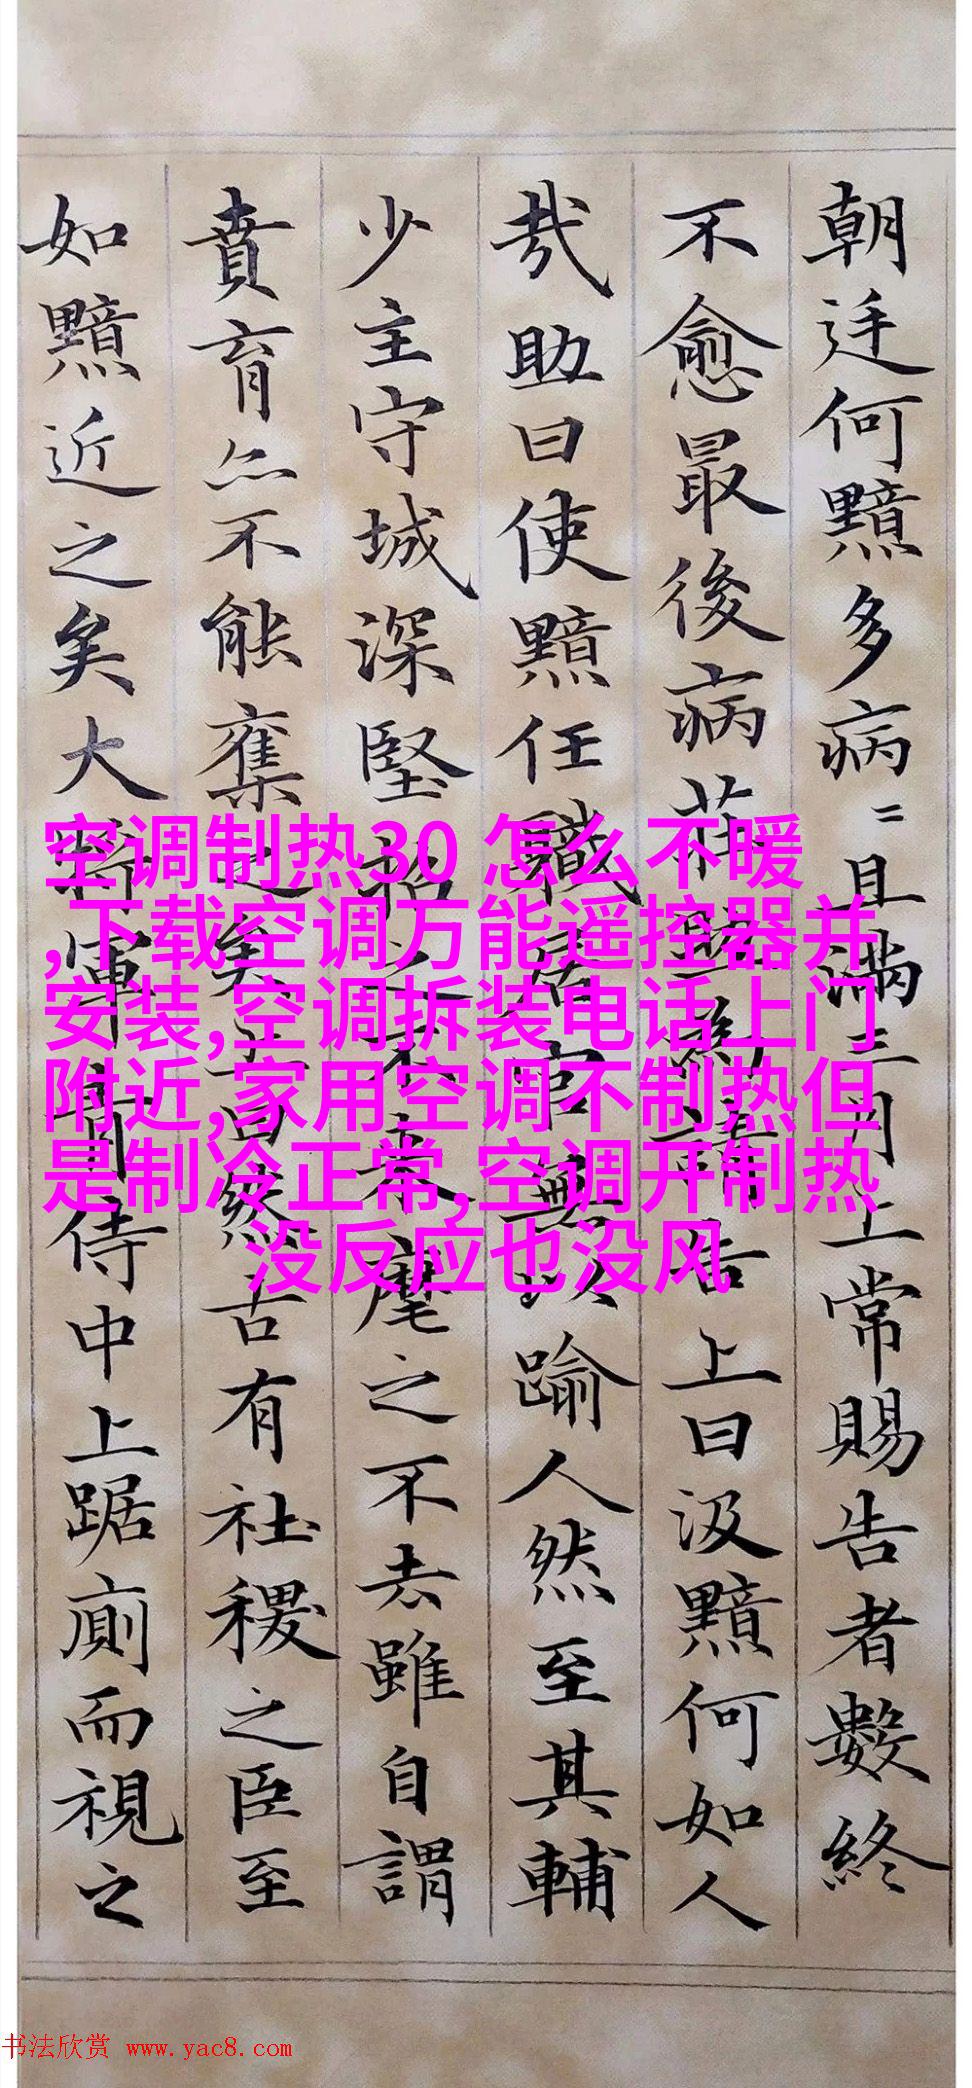 朝廷何黯多病〻且滿三月上常賜告者數終
不愈最後病莊助為請告上曰汲黯何如人
哉助曰使黯任職居官無以踰人然至其輔
少主守城深堅招之不來麾之不去雖自謂
賁育亦不能奪之矣上曰然古有社稷之臣至
如黯近之矣大將軍青侍中上踞廁而視之
空调制热30 怎么不暖
,下载空调万能遥控器并
安装,空调拆装电话上门
附近,家用空调不制热但
是制冷正常,空调开制热
没反应也没风
书法欣赏 www.yac8.com